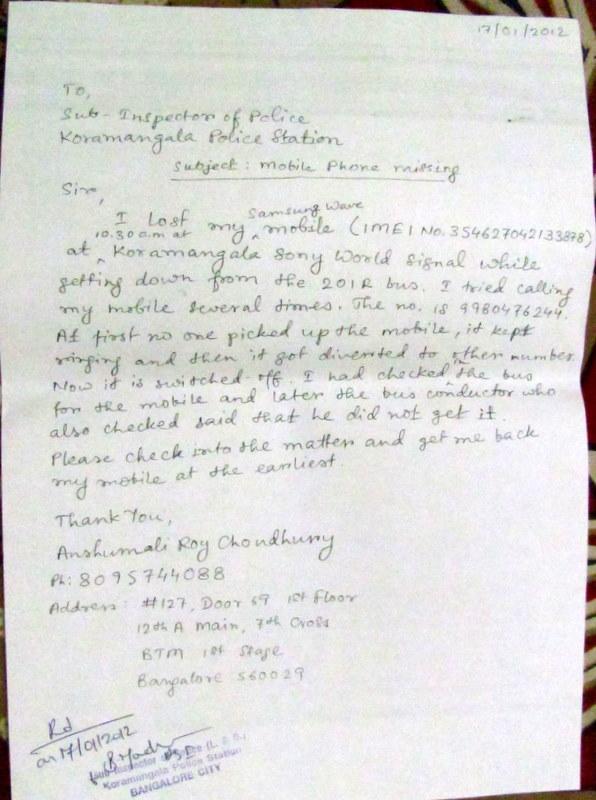 17/01/2012
To,
Sub-Inspector of Police
Koramangala Police Station
Subject: Mobile Phone missing
Sir,
I lost my Samsung Wave mobile (IMEI No. 354627042133878)
10.30 a.m at
at Koramangala Sony World Signal while
getting down from the 201R bus. I tried calling
my mobile several times. The no. is 9980476244.
At first no one picked up the mobile, it kept
ringing and then it got diverted to other number.
Now it is switched off. I had checked in the bus
for the mobile and later the bus conductor who
also checked said that he did not get it.
Please check into the matter and get me back
my mobile at the earliest.
Thank You,
Anshumali Roy Choudhury
Ph: 8095744088
Address: #127, Door 59 1st Floor
12th A Main, 7th Cross
BTM 1st Stage
Bangalore 560029
Rd
on 17/01/2012
PSI
Sub-Inspector of Police (L. & O.)
Koramangala Police Station
BANGALORE CITY